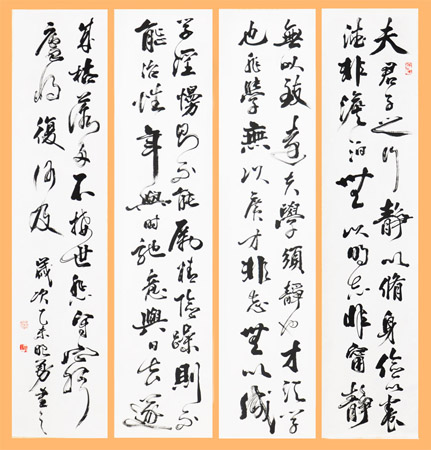 夫君子之行靜以脩身儉以養
德非澹泊無以明志非甯靜
無以致遠夫學須靜也才須學
也非學無以廣才非志無以成
學淫慢則不能勵精險躁則不
能治性年與時馳意與日去遂
成枯落多不接世悲守窮
廬將復何及 歲次乙未 書之